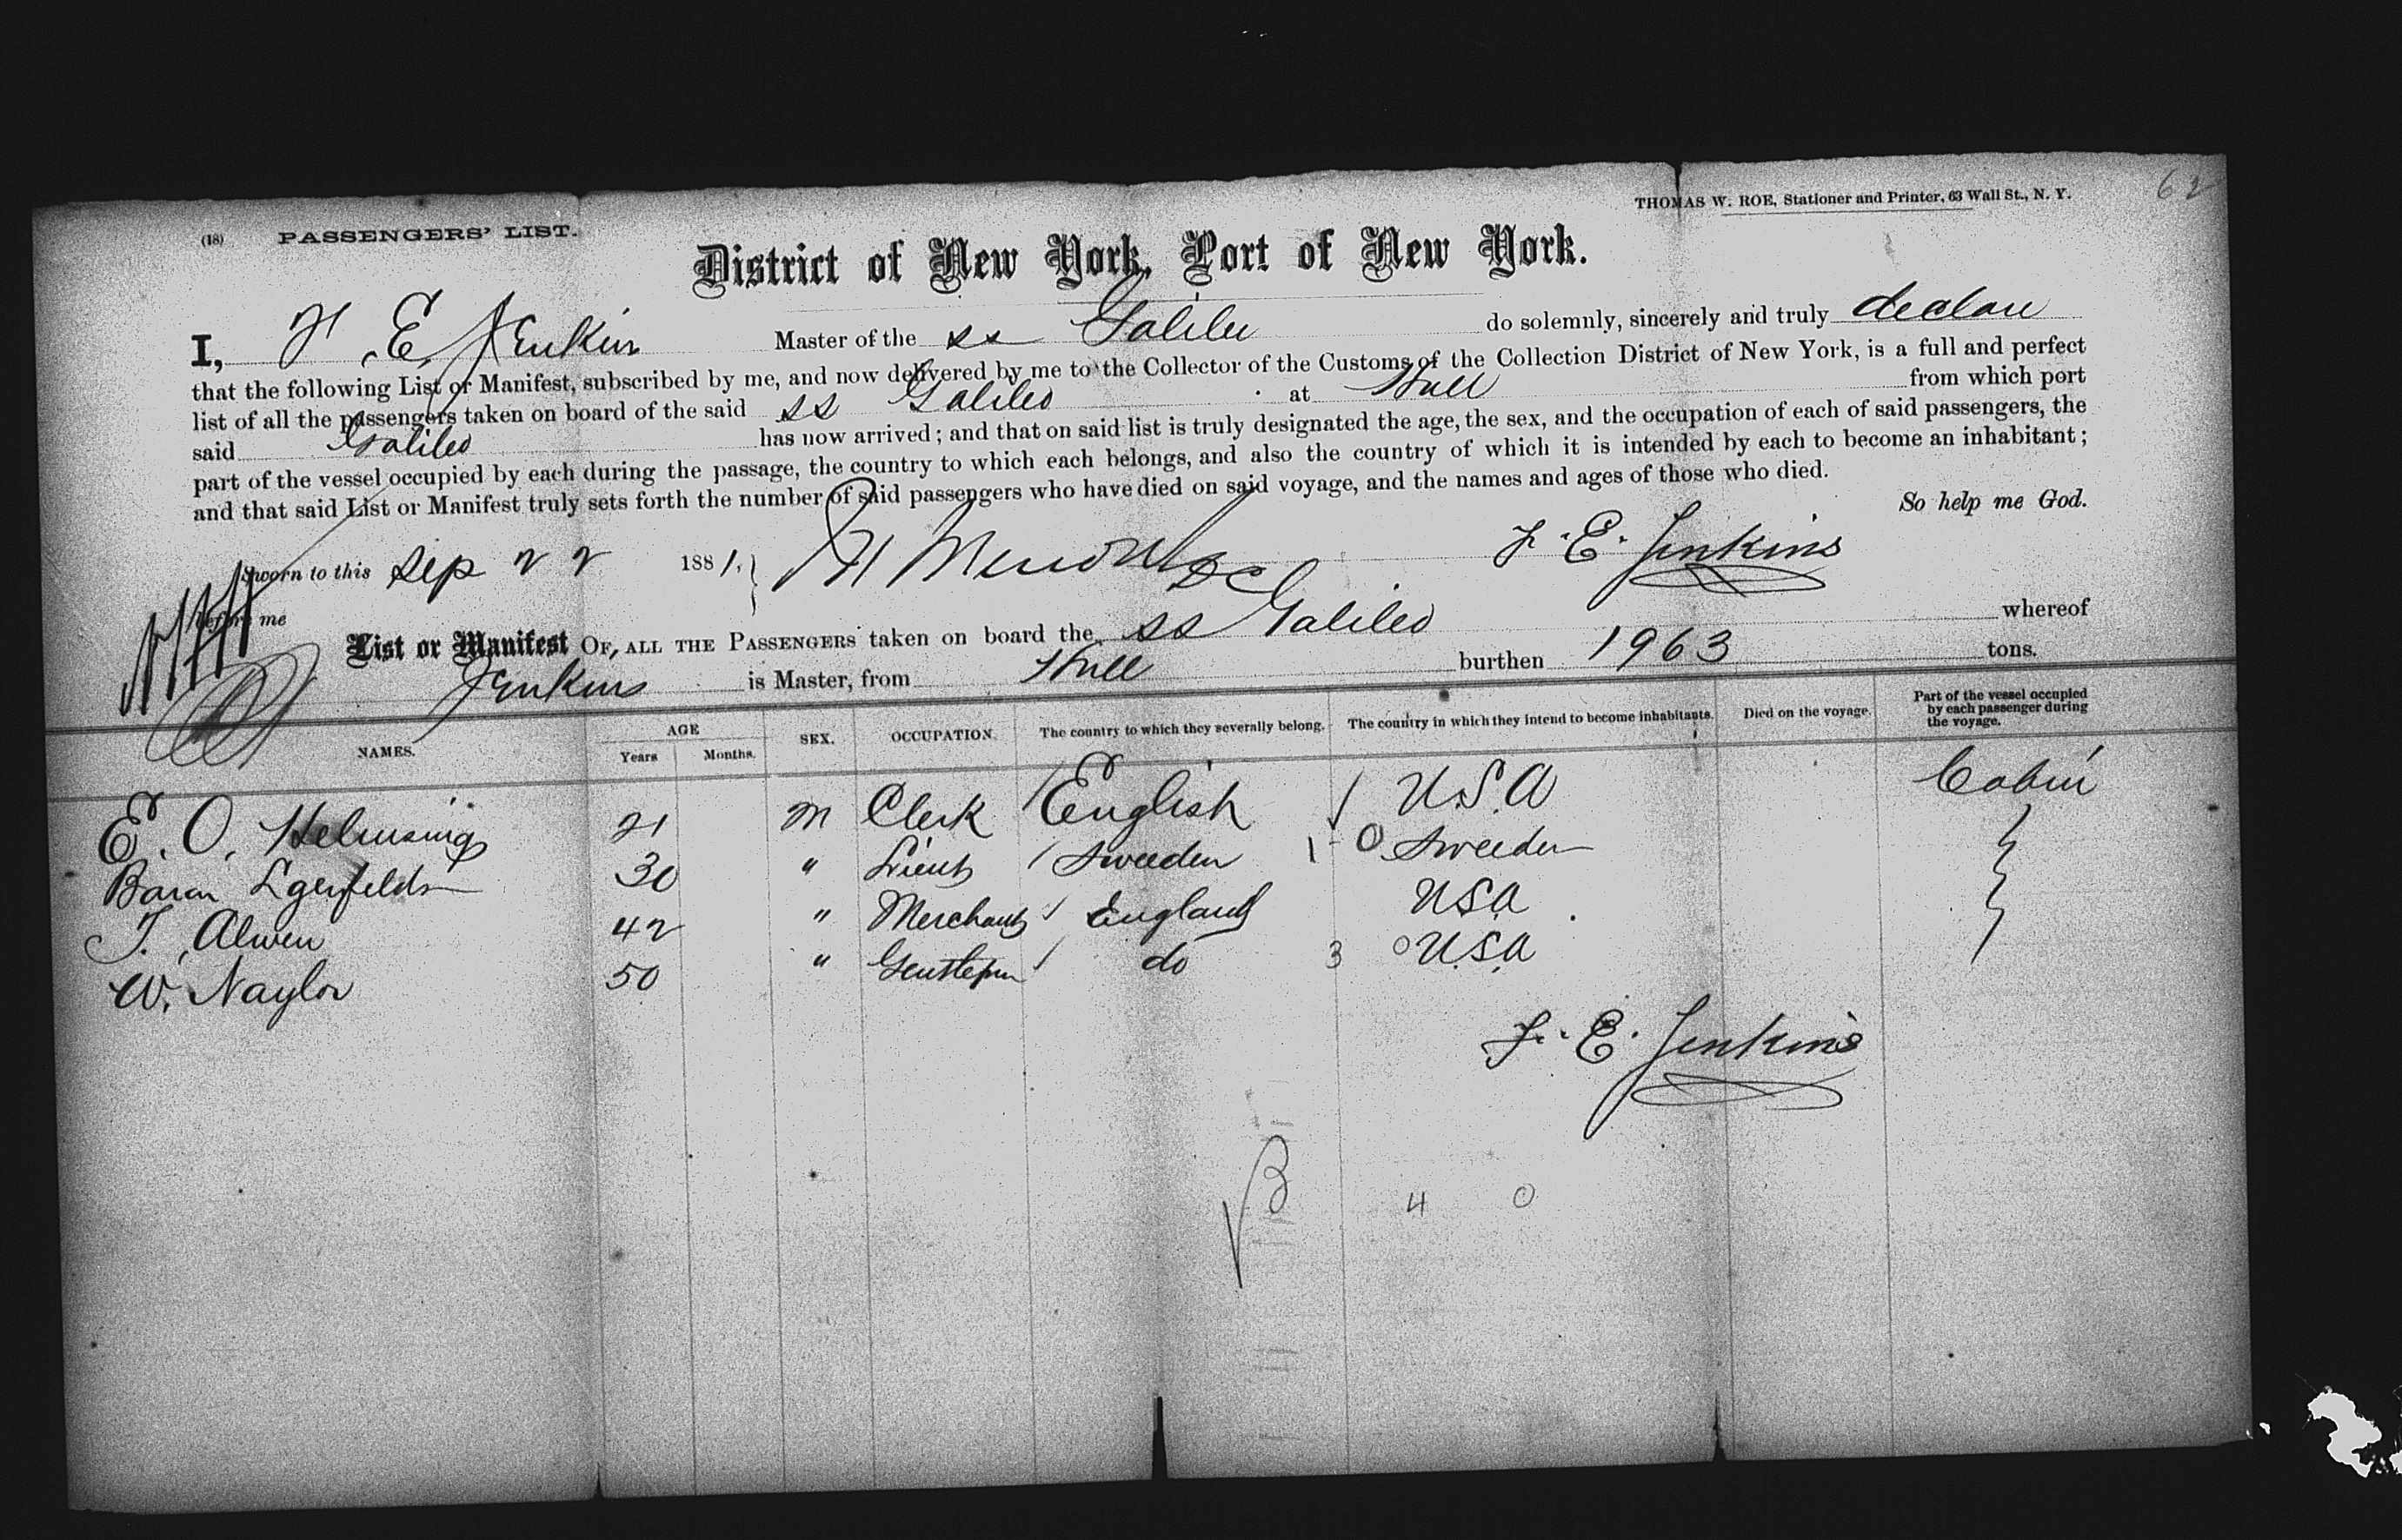 62
THOMAS W. ROE, Stationer and Printer, 63 Wall St., N. Y.
(18) PASSENGERS' LIST.
District of New York, Port of New York.
I, F. E. Jenkins Master of the ss Galileo do solemnly, sincerely and truly declare
that the following List or Manifest, subscribed by me, and now delivered by me to the Collector of the Customs of the Collection District of New York, is a full and perfect
list of all the passengers taken on board of the said ss Galileo at Hull from which port
said Galileo has now arrived; and that on said list is truly designated the age, the sex, and the occupation of each of said passengers, the
part of the vessel occupied by each during the passage, the country to which each belongs, and also the country of which it is intended by each to become an inhabitant;
and that said List or Manifest truly sets forth the number of said passengers who have died on said voyage, and the names and ages of those who died.
So help me God.
Sworn to this Sep 22 1881, F. E. Jenkins
Before me
List or Manifest OF, ALL THE PASSENGERS taken on board the ss Galileo whereof
Jenkins is Master, from Hull burthen 1963 tons.
NAMES. AGE Years Months. SEX. OCCUPATION. The country to which they severally belong. The country in which they intend to become inhabitants. Died on the voyage. Part of the vessel occupied by each passenger during the voyage.
E. O. Helmsing 21 M Clerk English U.S.A Cabin
Baron 30 " Lieut Sweeden 1 0 Sweeden
T. Alwen 42 " Merchant England USA
W. Naylor 50 " Gentlemn do 3 0 U.S.A
F. E. Jenkins
4 0